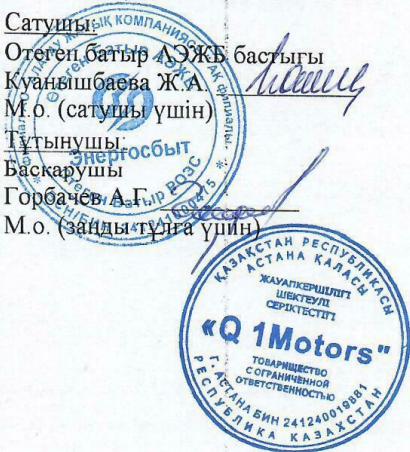 Сатушы:
Өтеген батыр АЭЖБ бастығы
Куанышбаева Ж.А.
М.о. (сатушы үшін)
Тұтынушы:
Басқарушы
Горбачев А.Г.
М.о. (заңды тұлға үшін)
Энергосбыт
Өтеген батыр РОЭС
ҚАЗАҚСТАН РЕСПУБЛИКАСЫ
АСТАНА ҚАЛАСЫ
ЖАУАПКЕРШІЛІГІ
ШЕКТЕУЛІ
СЕРІКТЕСТІГІ
«Q 1Motors"
ТОВАРИЩЕСТВО
С ОГРАНИЧЕННОЙ
ОТВЕТСТВЕННОСТЬЮ
Г. АСТАНА БИН 241240019881
РЕСПУБЛИКА КАЗАХСТАН